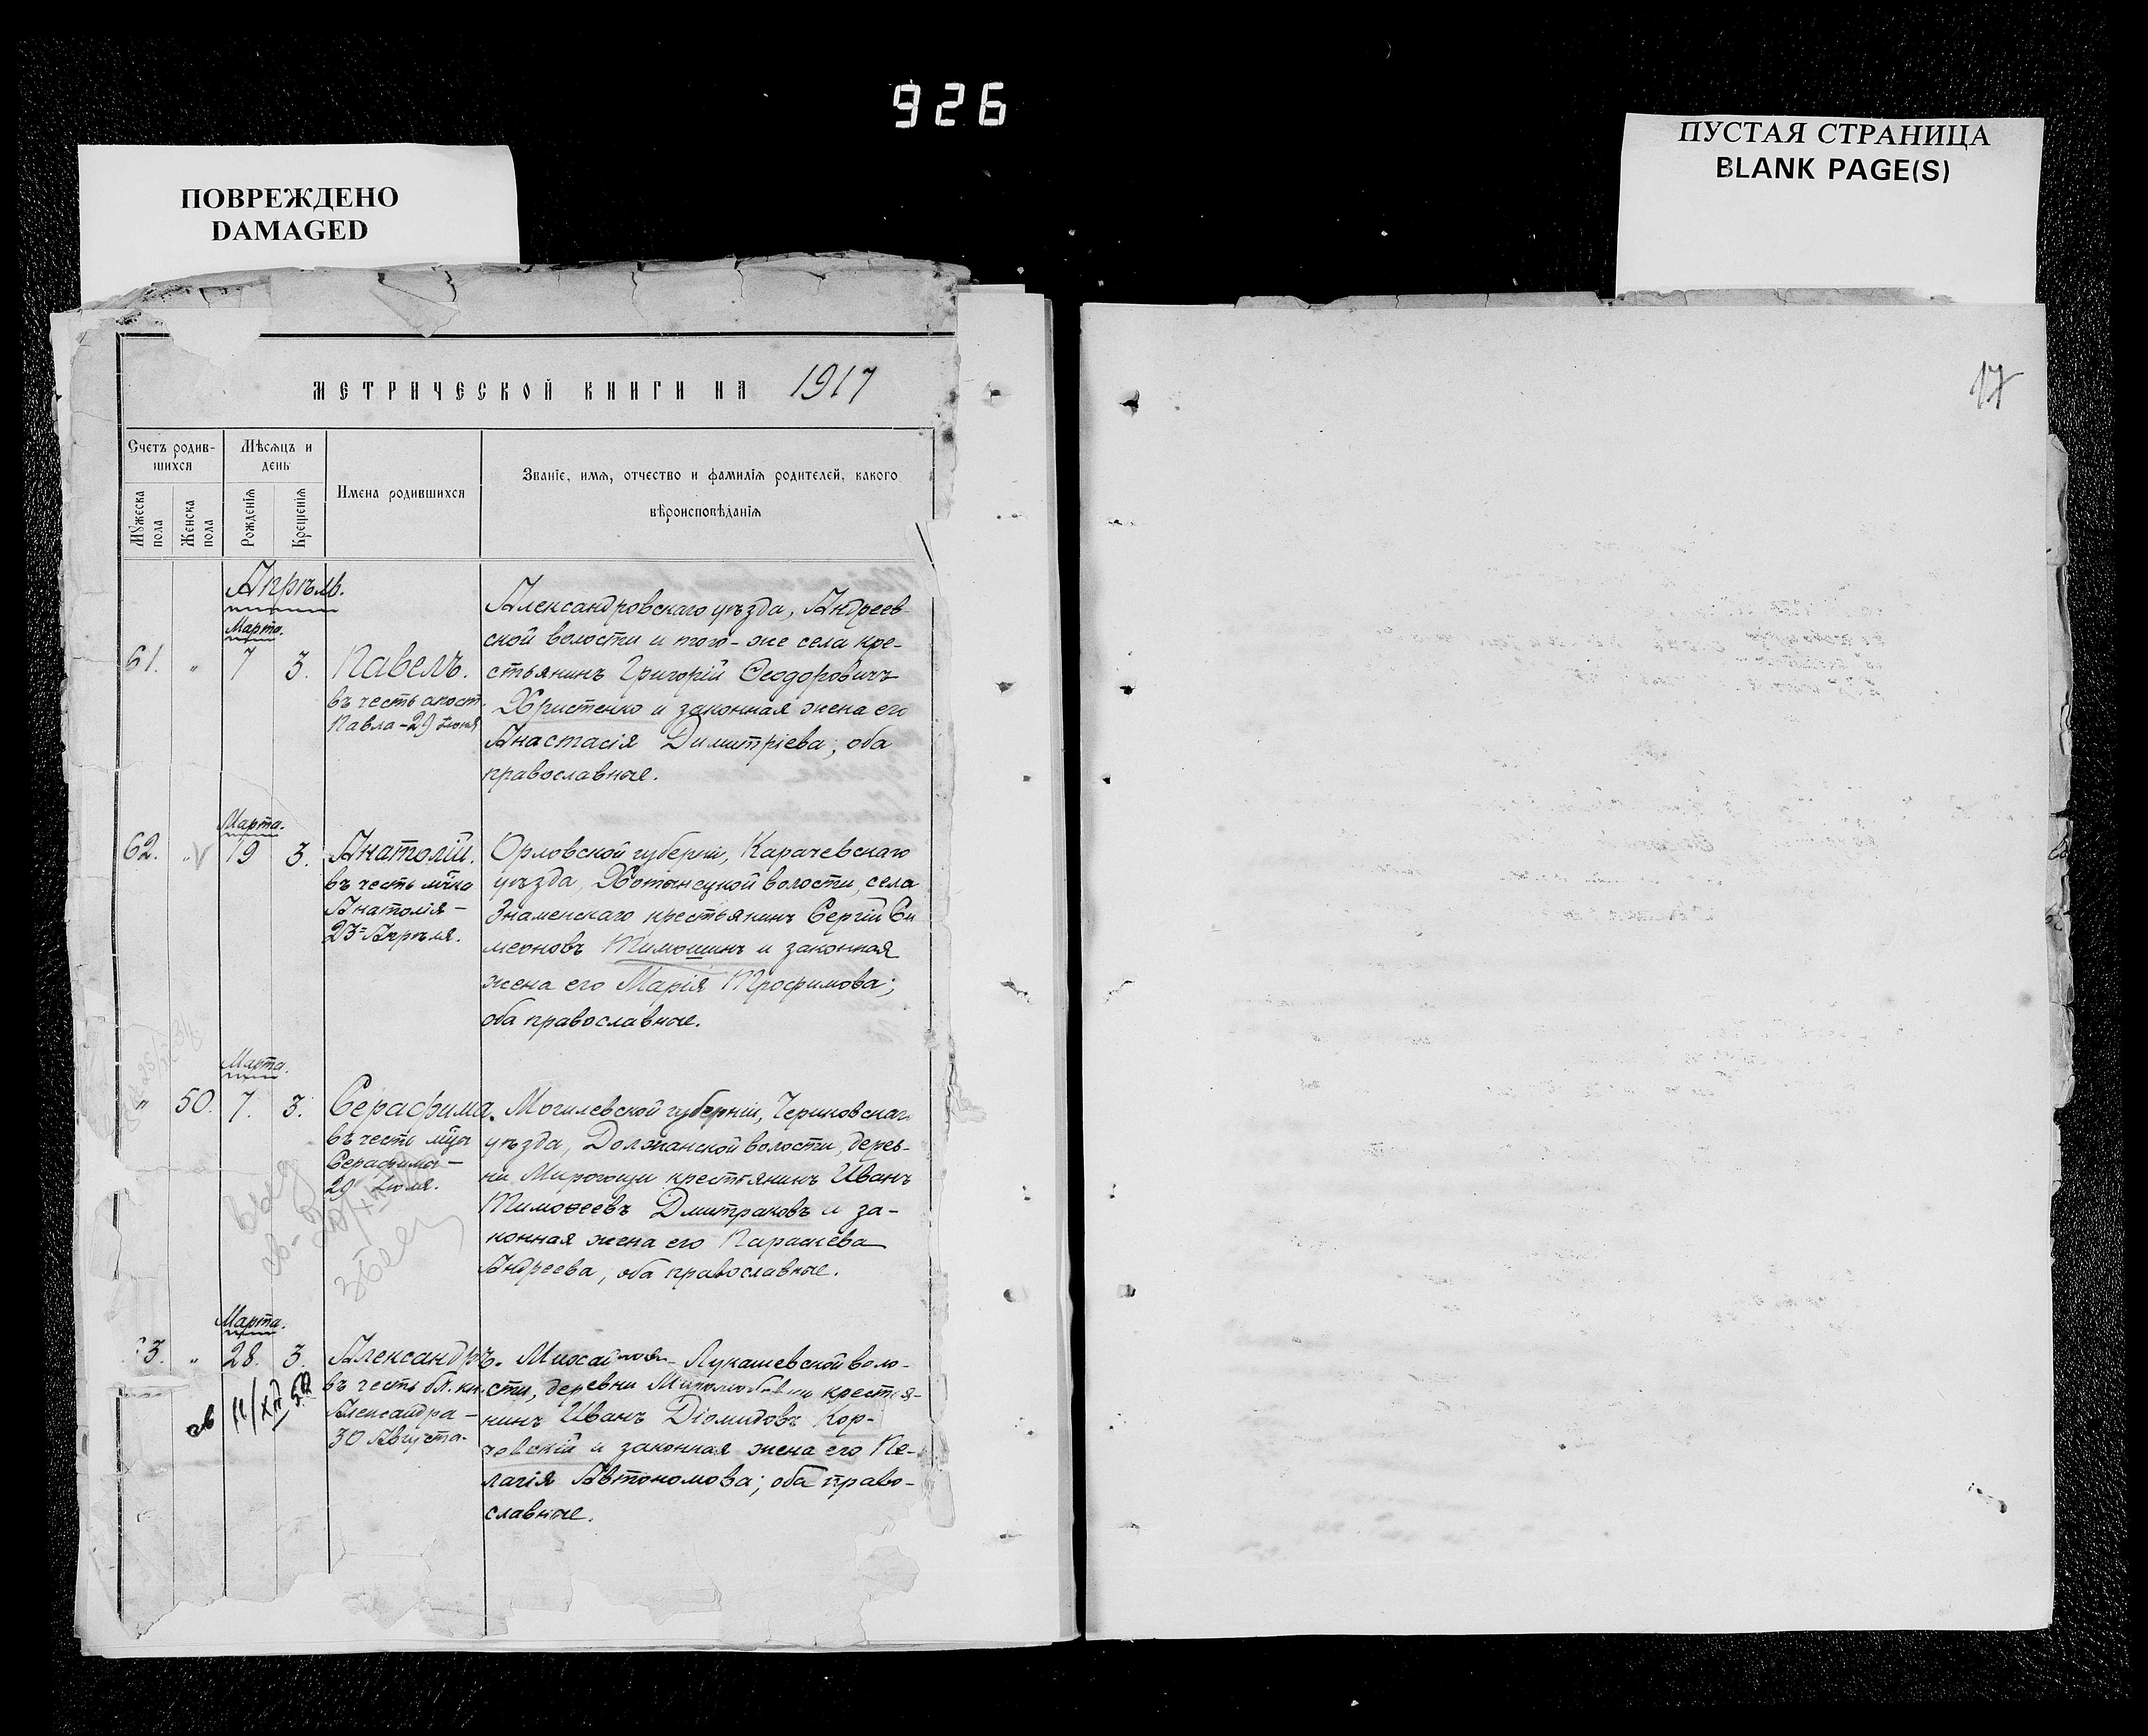 926
ПОВРЕЖДЕНО
DAMAGED
ПУСТАЯ СТРАНИЦА
BLANK PAGE(S)
МЕТРИЧЕСКОЙ КНИГИ НА 1917
Счетъ родив-
шихся
Мꙋжеска пола
Женска пола
Мѣсяцъ и
день
Рожденія
Крещенія
Имена родившихся
Званіе, имя, отчество и фамилія родителей, какого
вѣроисповѣданія
Апрѣль.
Марта.
61. " 7 3. Павелъ.
въ честь апост.
Павла - 29 Іюня
Александровскаго уѣзда, Андреев-
ской волости и того-же села кре-
стьянинъ Григорій Ѳеодоровичъ
Христенко и законная жена его
Анастасія Димитріева; оба
православные.
Марта.
62. " 19 3. Анатолій.
въ честь мч̃ка
Анатолія -
23= Апрѣля.
Орловской губерніи, Карачевскаго
уѣзда, Хотынецкой волости, села
Знаменскаго крестьянинъ Сергій Си
меоновъ Тимошинъ и законная
жена его Марія Трофимова;
оба православные.
Марта.
" 50. 7. 3. Серафима.
въ честь мц̃ы
Серафимы -
29 Іюля.
Могилевской губерніи, Чериковскаго
уѣзда, Должанской волости, дерев-
ни Мирогощи крестьянинъ Иванъ
Тимоѳеевъ Дмитраковъ и за-
конная жена его Параскева
Андреева, оба православные.
Марта.
3. " 28. 3. Александръ.
въ честь бл. кн.
Александра -
30 Августа.
Лукашевской воло-
сти, деревни крестья-
нинъ Иванъ Діомидовъ Кор-
чевскій и законная жена его Пе-
лагія Автономова; оба право-
славные.
17